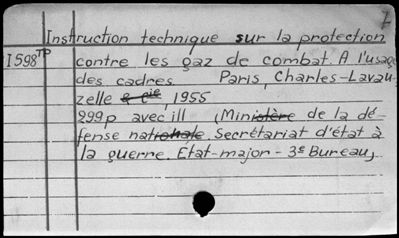 7
Instruction technique sur la protection
I598TP contre les gaz de combat. A l'usage
des cadres Paris, Charles-Lavau
zelle & Cie, 1955
299p avec ill (Ministère de la dé-
fense nationale Secrétariat d'état à
la guerre. Etat-major - 3e Bureau)